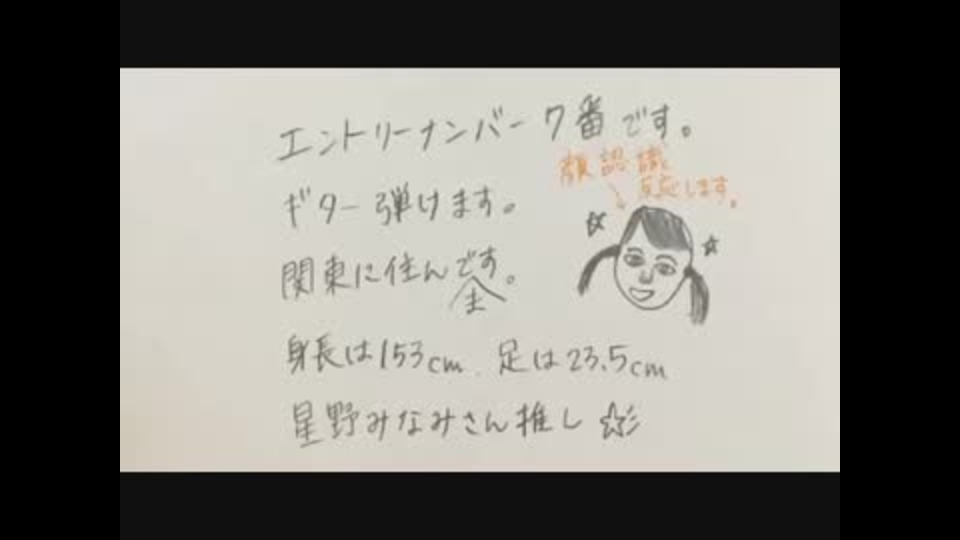 エントリーナンバー7番です。
顔認識
反応します。
ギター弾けます。
関東に住んです。
身長は153cm 足は23.5cm
星野みなみさん推し